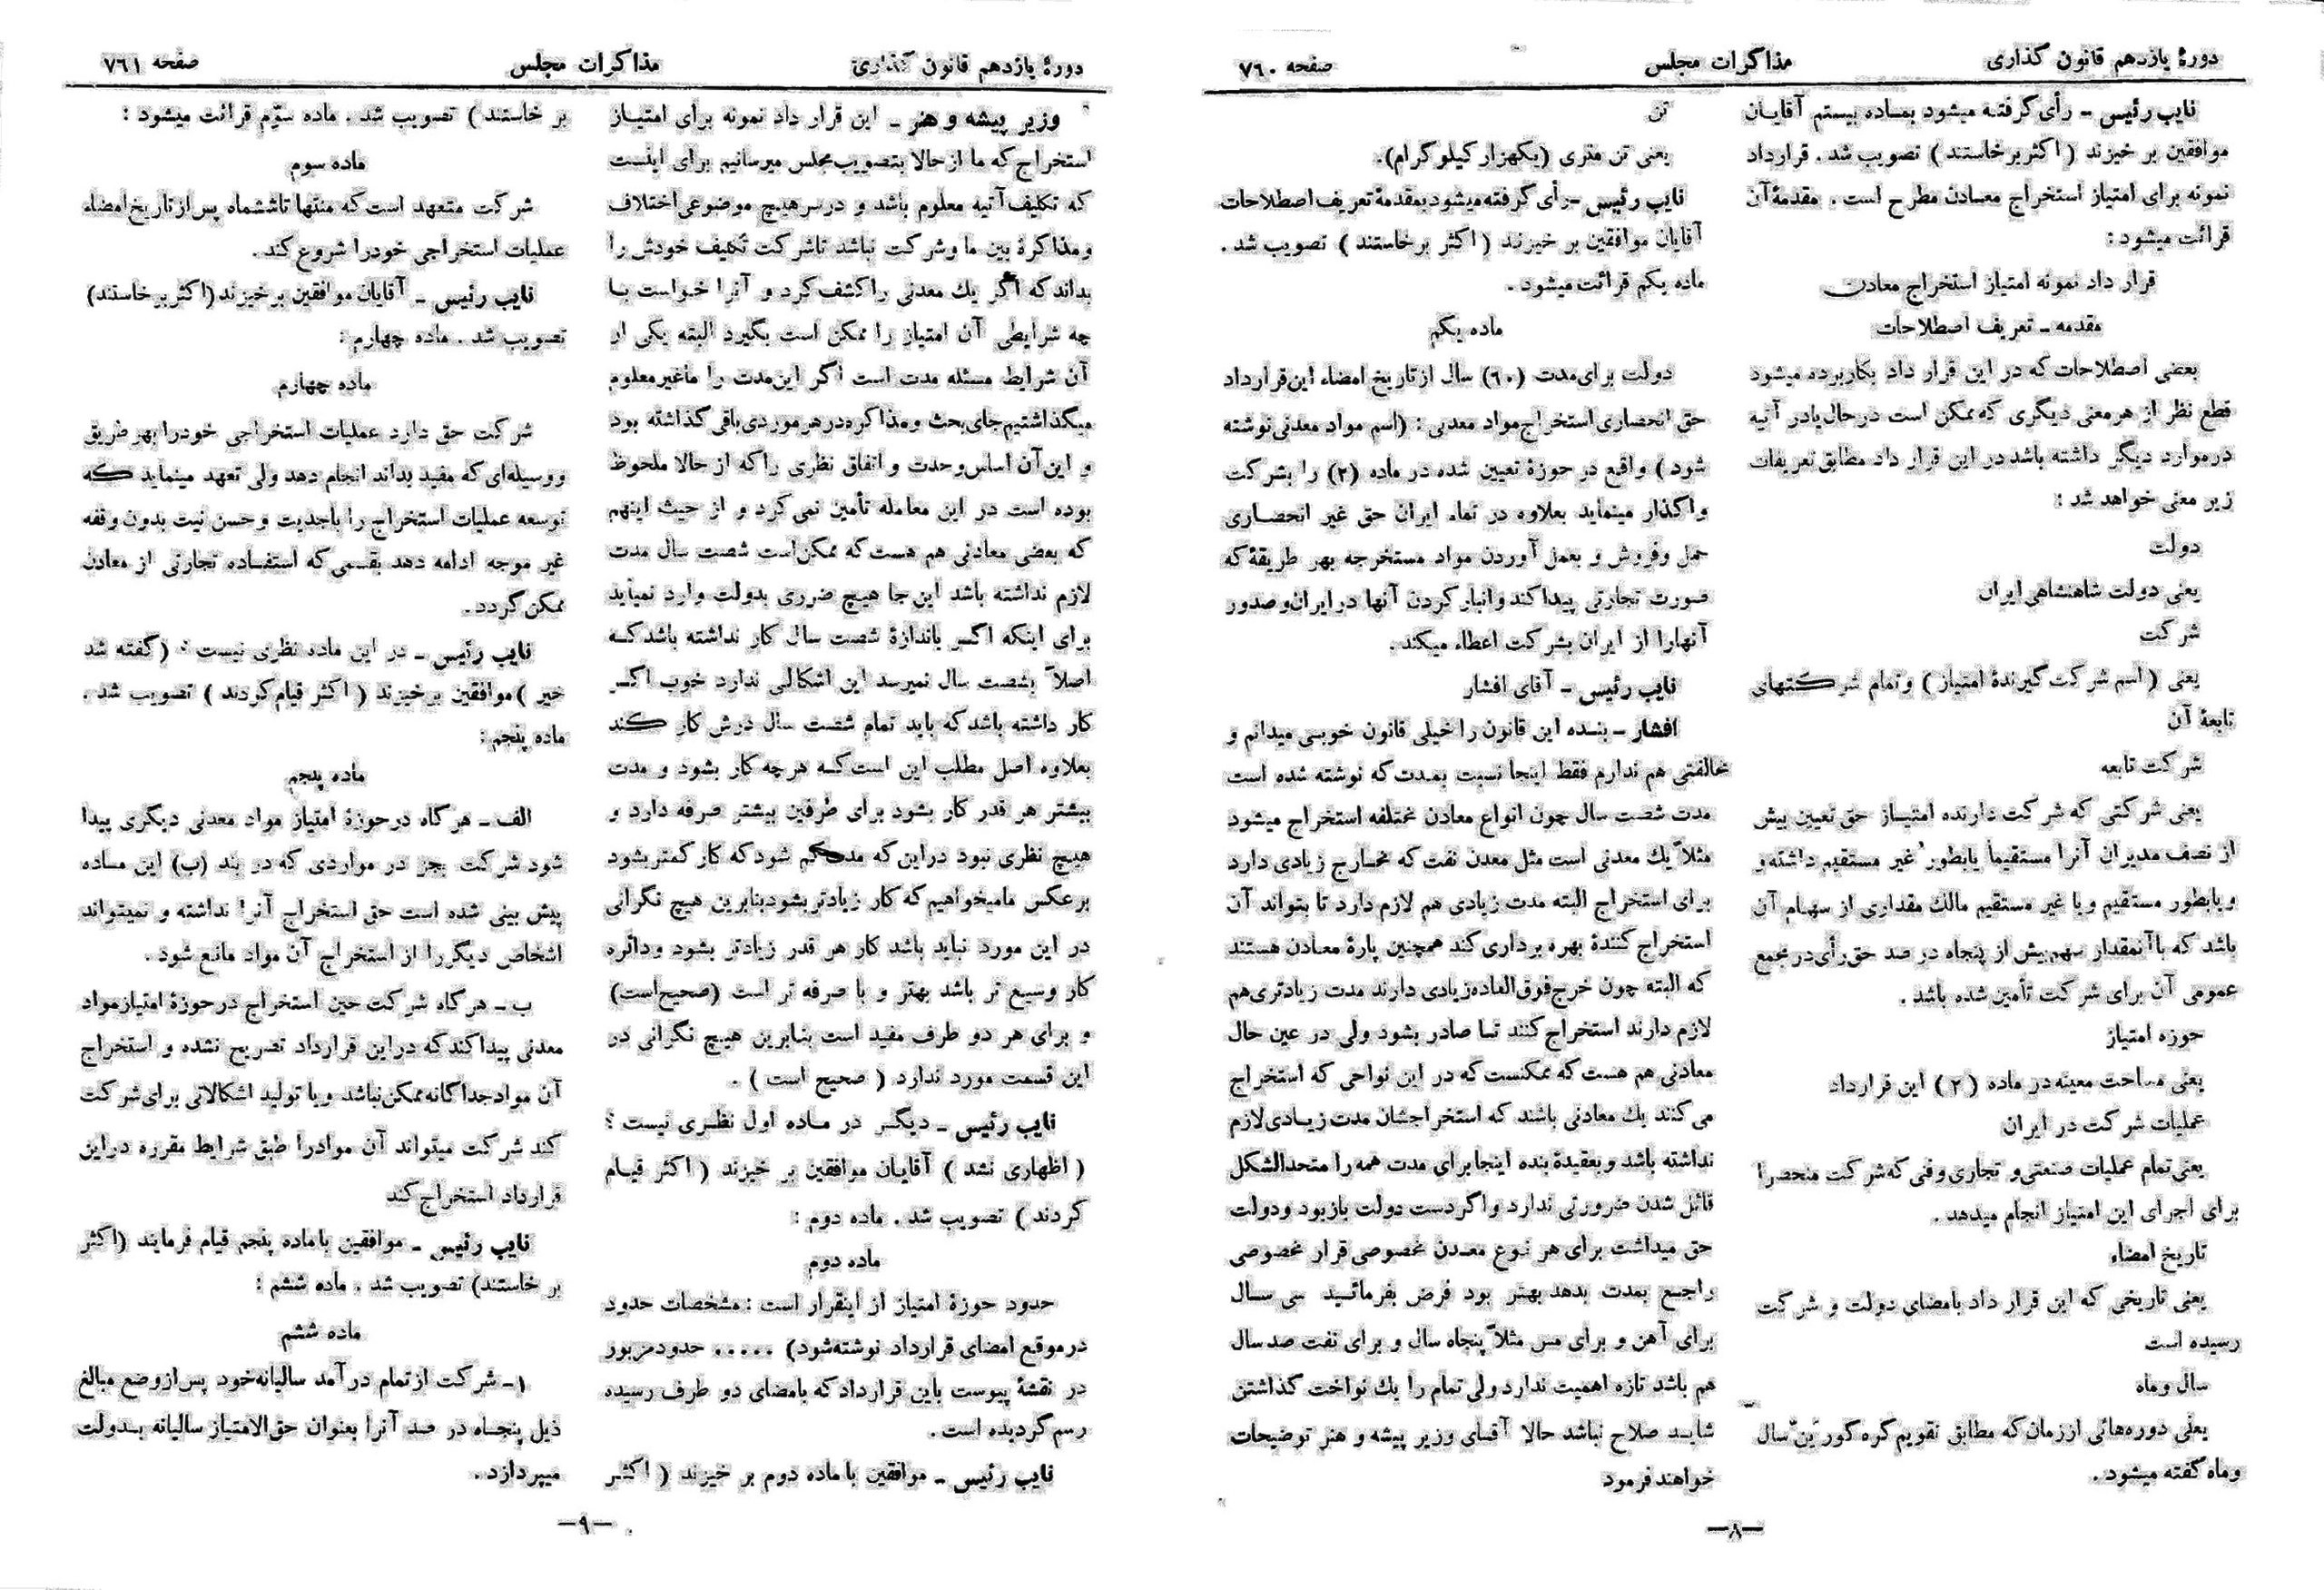 دورهٔ یازدهم قانون گذاری
مذاکرات مجلس
صفحه ۷۶۰
نایب رئیس ـ رأی گرفته میشود بماده بیستم آقایان
موافقین بر خیزند (اکثر برخاستند) تصویب شد . قرارداد
نمونه برای امتیاز استخراج معادن مطرح است . مقدمهٔ آن
قرائت میشود :
قرار داد نمونه امتیاز استخراج معادن
مقدمه ـ تعریف اصطلاحات
بعضی اصطلاحات که در این قرار داد بکار برده میشود
قطع نظر از هر معنی دیگری که ممکن است در حال یا در آتیه
در موارد دیگر داشته باشد در این قرار داد مطابق تعریفات
زیر معنی خواهد شد :
دولت
یعنی دولت شاهنشاهی ایران
شرکت
یعنی (اسم شرکت گیرندهٔ امتیاز) و تمام شرکتهای
تابعهٔ آن
شرکت تابعه
یعنی شرکتی که شرکت دارنده امتیاز حق تعیین بیش
از نصف مدیران آنرا مستقیماً یا بطور غیر مستقیم داشته و
و یا بطور مستقیم و یا غیر مستقیم مالك مقداری از سهام آن
باشد که با آنمقدار سهم بیش از پنجاه در صد حق رأی در مجمع
عمومی آن برای شرکت تأمین شده باشد .
حوزه امتیاز
یعنی مساحت معینه در ماده (۲) این قرارداد
عملیات شرکت در ایران
یعنی تمام عملیات صنعتی و تجاری و فنی که شرکت منحصراً
برای اجرای این امتیاز انجام میدهد .
تاریخ امضاء
یعنی تاریخی که این قرار داد بامضای دولت و شرکت
رسیده است
سال و ماه
یعنی دوره‌هائی از زمان که مطابق تقویم گره گورین سال
و ماه گفته میشود .
تن
یعنی تن متری (یکهزار کیلو گرام).
نایب رئیس ـ رأی گرفته میشود بمقدمهٔ تعریف اصطلاحات
آقایان موافقین بر خیزند (اکثر برخاستند) تصویب شد .
ماده یکم قرائت میشود .
ماده یکم
دولت برای مدت (۶۰) سال از تاریخ امضاء این قرارداد
حق انحصاری استخراج مواد معدنی : (اسم مواد معدنی نوشته
شود) واقع در حوزهٔ تعیین شده در ماده (۲) را بشرکت
واگذار مینماید بعلاوه در تمام ایران حق غیر انحصاری
حمل و فروش و بعمل آوردن مواد مستخرجه بهر طریقهٔ که
صورت تجارتی پیدا کند و انبار کردن آنها در ایران و صدور
آنهارا از ایران بشرکت اعطاء میکند .
نایب رئیس ـ آقای افشار
افشار ـ بنده این قانون را خیلی قانون خوبی میدانم و
مخالفتی هم ندارم فقط اینجا نسبت بمدت که نوشته شده است
مدت شصت سال چون انواع معادن مختلفه استخراج میشود
مثلاً یك معدنی است مثل معدن نفت که مخارج زیادی دارد
برای استخراج البته مدت زیادی هم لازم دارد تا بتواند آن
استخراج کنندهٔ بهره برداری کند همچنین پارهٔ معادن هستند
که البته چون خرج فوق العاده زیادی دارند مدت زیادتری هم
لازم دارند استخراج کنند تا صادر بشود ولی در عین حال
معادنی هم هست که ممکنست که در این نواحی که استخراج
می کنند یك معادنی باشند که استخراجشان مدت زیادی لازم
نداشته باشد و بعقیدهٔ بنده اینجا برای مدت همه را متحدالشکل
قائل شدن ضرورتی ندارد و اگر دست دولت باز بود و دولت
حق میداشت برای هر نوع معدن مخصوصی قرار مخصوصی
راجع بمدت بدهد بهتر بود فرض بفرمائید سی سال
برای آهن و برای مس مثلاً پنجاه سال و برای نفت صد سال
هم باشد تازه اهمیت ندارد ولی تمام را یك نواخت گذاشتن
شاید صلاح نباشد حالا آقای وزیر پیشه و هنر توضیحات
خواهند فرمود
ـ۸ـ
دورهٔ یازدهم قانون گذاری
مذاکرات مجلس
صفحه ۷۶۱
وزیر پیشه و هنر ـ این قرار داد نمونه برای امتیاز
استخراج که ما از حالا بتصویب مجلس میرسانیم برای اینست
که تکلیف آتیه معلوم باشد و در سر هیچ موضوعی اختلاف
و مذاکرهٔ بین ما و شرکت نباشد تا شرکت تکلیف خودش را
بداند که اگر یك معدنی را کشف کرد و آنرا خواست با
چه شرایطی آن امتیاز را ممکن است بگیرد البته یکی از
آن شرایط مسئله مدت است اگر این مدت را ما غیر معلوم
میگذاشتیم جای بحث و مذاکره در هر موردی باقی گذاشته بود
و این آن اساس وحدت و اتفاق نظری را که از حالا ملحوظ
بوده است در این معامله تأمین نمی کرد و از حیث اینهم
که بعضی معادنی هم هست که ممکن است شصت سال مدت
لازم نداشته باشد این جا هیچ ضرری بدولت وارد نمیاید
برای اینکه اگر باندازهٔ شصت سال کار نداشته باشد که
اصلاً بشصت سال نمیرسد این اشکالی ندارد خوب اگر
کار داشته باشد که باید تمام شصت سال درش کار کند
بعلاوه اصل مطلب این است که هر چه کار بشود و مدت
بیشتر هر قدر کار بشود برای طرفین بیشتر صرفه دارد و
هیچ نظری نبود در این که مدت کم شود که کار کمتر بشود
بر عکس ما میخواهیم که کار زیادتر بشود بنابرین هیچ نگرانی
در این مورد نباید باشد کار هر قدر زیادتر بشود و دائره
کار وسیع تر باشد بهتر و با صرفه تر است (صحیح است)
و برای هر دو طرف مفید است بنابرین هیچ نگرانی در
این قسمت مورد ندارد (صحیح است) .
نایب رئیس ـ دیگر در ماده اول نظری نیست ؟
(اظهاری نشد) آقایان موافقین بر خیزند (اکثر قیام
کردند) تصویب شد . ماده دوم :
ماده دوم
حدود حوزهٔ امتیاز از اینقرار است : مشخصات حدود
در موقع امضای قرارداد نوشته شود) ..... حدود مزبور
در نقشهٔ پیوست باین قرارداد که بامضای دو طرف رسیده
رسم گردیده است .
نایب رئیس ـ موافقین با ماده دوم بر خیزند (اکثر
بر خاستند) تصویب شد . ماده سوّم قرائت میشود :
ماده سوم
شرکت متعهد است که منتها تا ششماه پس از تاریخ امضاء
عملیات استخراجی خودرا شروع کند .
نایب رئیس ـ آقایان موافقین بر خیزند (اکثر برخاستند)
تصویب شد . ماده چهارم :
ماده چهارم
شرکت حق دارد عملیات استخراجی خودرا بهر طریق
و وسیله‌ای که مفید بداند انجام دهد ولی تعهد مینماید که
توسعه عملیات استخراج را باجدیت و حسن نیت بدون وقفه
غیر موجه ادامه دهد بقسمی که استفاده تجارتی از معادن
ممکن گردد .
نایب رئیس ـ در این ماده نظری نیست ؟ (گفته شد
خیر) موافقین برخیزند (اکثر قیام کردند) تصویب شد .
ماده پنجم :
ماده پنجم
الف ـ هر گاه در حوزهٔ امتیاز مواد معدنی دیگری پیدا
شود شرکت بجز در مواردی که در بند (ب) این ماده
پیش بینی شده است حق استخراج آنرا نداشته و نمیتواند
اشخاص دیگر را از استخراج آن مواد مانع شود .
ب ـ هر گاه شرکت حین استخراج در حوزهٔ امتیاز مواد
معدنی پیدا کند که در این قرارداد تصریح نشده و استخراج
آن مواد جداگانه ممکن نباشد و یا تولید اشکالاتی برای شرکت
کند شرکت میتواند آن موادرا طبق شرایط مقرره در این
قرارداد استخراج کند
نایب رئیس ـ موافقین با ماده پنجم قیام فرمایند (اکثر
بر خاستند) تصویب شد . ماده ششم :
ماده ششم
۱ـ شرکت از تمام درآمد سالیانه خود پس از وضع مبالغ
ذیل پنجاه در صد آنرا بعنوان حق‌الامتیاز سالیانه بدولت
میپردازد .
ـ۹ـ